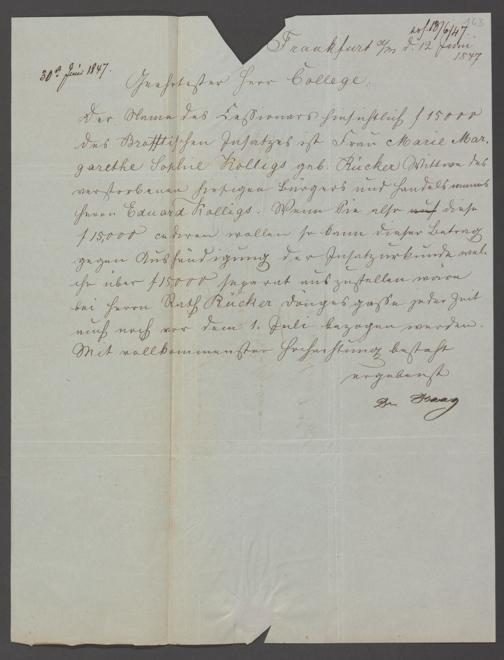 163
erh. 18/6/47.
Frankfurt a/m d. 12 Juni
1847
30ª Juni 1847.
Geehrtester Herr College.
Der Name des Cessionars hinsichtlich f 15000
des Insatzes ist Frau Marie Mar,
garethe Sophie Kolligs geb. Rücker Wittwe des
verstorbenen hiesigen Bürgers und Handelsmanns
Herrn Eduard Kolligs. Wenn Sie also diese
f 15,000 cediren wollen so kann dieser Betrag
gegen Aushändigung der Insatzurkunde wel,
che über f 15000 separat auszustellen wäre
bei Herrn Rath Rücker Döngesgasse jeder Zeit
auch noch vor dem 1. Juli bezogen werden.
Mit vollkommenster Hochachtung besteht
ergebenst
Dr Haag